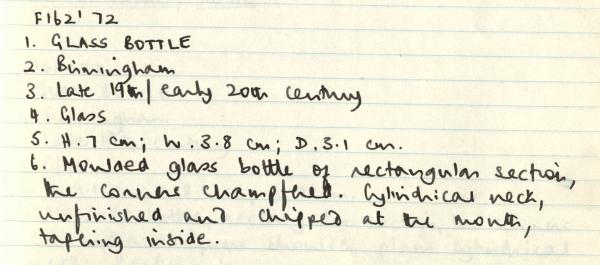 F162' 72
1. GLASS BOTTLE
2. Birmingham
3. Late 19th / early 20th century
4. Glass
5. H. 7 cm; W. 3.8 cm; D. 3.1 cm.
6. Moulded glass bottle of rectangular section,
the corners champfred. Cylindrical neck,
unfinished and chipped at the mouth,
tapering inside.